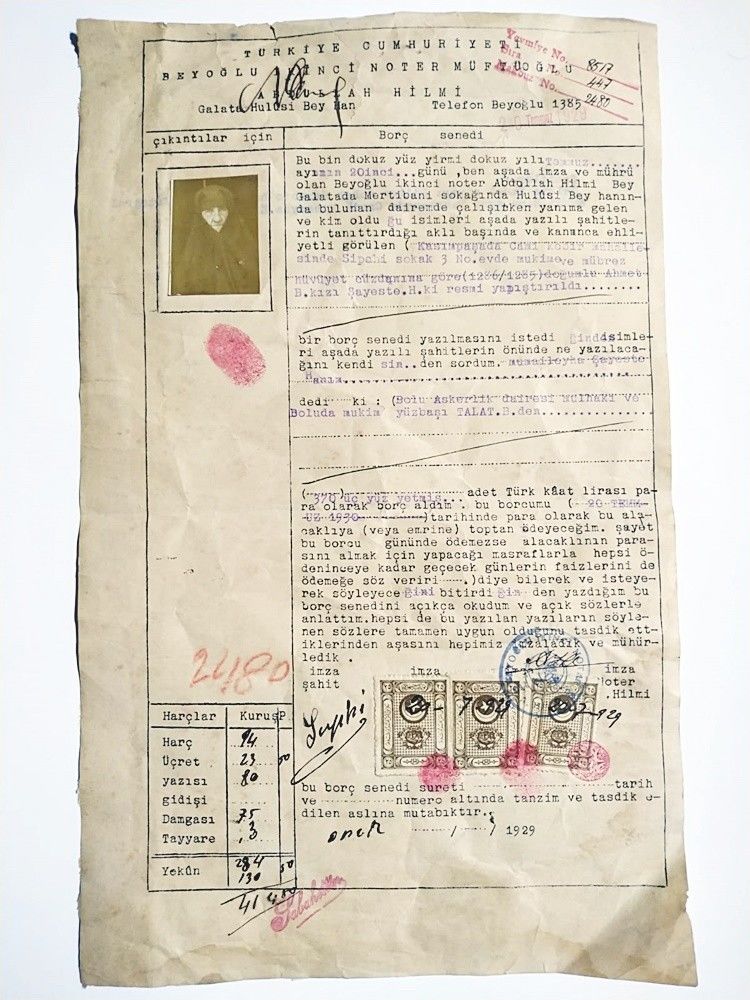 TÜRKİYE CUMHURİYETİ
BEYOĞLU İKİNCİ NOTER MÜFTÜOĞLU
ABDULLAH HİLMİ
Galata Hulûsi Bey Han Telefon Beyoğlu 1385
Yevmiye No. 8517
Sıra No. 447
No. 2480
çıkıntılar için
Borç senedi
Bu bin dokuz yüz yirmi dokuz yılı Temmuz.......
ayının 20inci...günü ,ben aşada imza ve mührü
olan Beyoğlu ikinci noter Abdollah Hilmi Bey
Galatada Mertibani sokağında Hulûsi Bey hanın-
da bulunan dairemde çalışırken yanıma gelen
ve kim oldu ğu isimleri aşada yazılı şahitle-
rin tanıttırdığı aklı başında ve kanunca ehli-
yetli görülen ( Kasımpaşada Cami kebir mahalle-
sinde Sipahi sokak 3 No.evde mukime ve mübrez
hüvüyet cüzdanına göre(1286/1285)doğumlu Ahmet
B.kızı Şayeste.H.ki resmi yapıştırıldı........
bir borç senedi yazılmasını istedi isimle-
ri aşada yazılı şahitlerin önünde ne yazılaca-
ğını kendi sin..den sordum. mumaileyha Şayeste
Hanım..............................
dedi ki : (Bolu Askerlik dairesi mülhakı ve
Boluda mukim yüzbaşı TALAT.B.den..............
( 370 üç yüz yetmiş... adet Türk kâat lirası pa-
ra olarak borç aldım . bu borcumu ( 20 TEMM-
UZ 1930 )tarihinde para olarak bu ala-
caklıya (veya emrine) toptan ödeyeceğim. şayet
bu borcu gününde ödemezse alacaklının para-
sını almak için yapacağı masraflarla hepsi ö-
deninceye kadar geçecek günlerin faizlerini de
ödemeğe söz veriri .)diye bilerek ve isteye-
rek söyleyece ğini bitirdi ğin den yazdığım bu
borç senedini açıkça okudum ve açık sözlerle
anlattım.hepsi de bu yazılan yazıların söyle-
nen sözlere tamamen uygun olduğunu tasdik ett-
iklerinden aşasını hepimiz imzaladık ve mühür-
ledik .
imza imza imza
şahit Noter
.Hilmi
2480
20- 7 929 20-7-929
Harçlar Kuruş P.
Harç 94
Ücret 23 50
yazısı 80
gidişi
Damgası 75
Tayyare 3
Yekûn 284 50
130
414 50
bu borç senedi sureti tarih
ve numero altında tanzim ve tasdik e-
dilen aslına mutabıktır.
/ / 1929